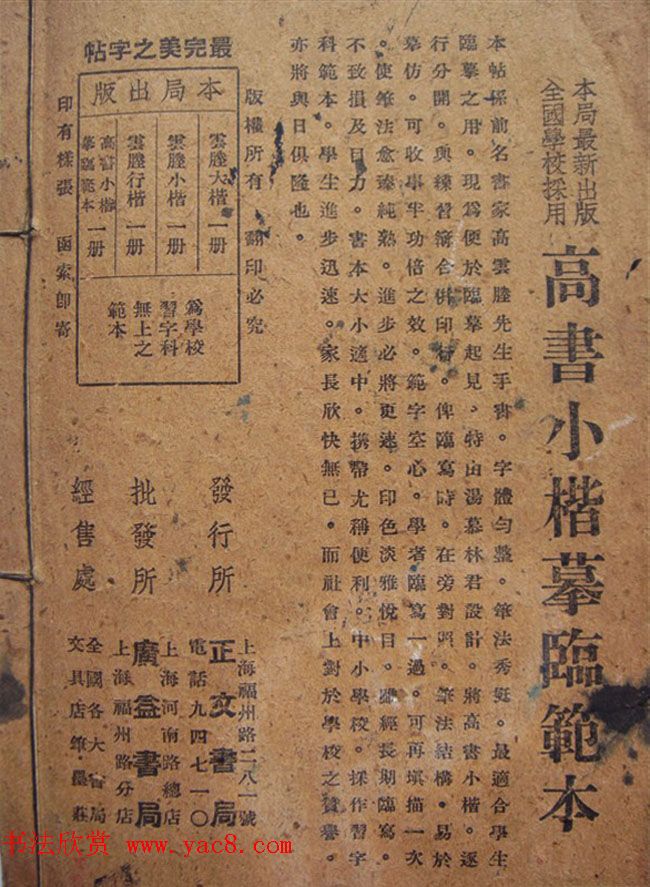 本局最新出版
全國學校採用
高書小楷摹臨範本
本帖係前名書家高雲塍先生手書。字體勻整。筆法秀挺。最適合學生
臨摹之用。現爲便於臨摹起見。特由湯慕林君設計。將高書小楷。逐
行分開。與練習簿合併印。俾臨寫時。在旁對照。筆法結構。易於
摹仿。可收事半功倍之效。範字空心。學者臨寫一過。可再填描一次
。使筆法愈臻純熟。進步必將更速。印色淡雅悅目。雖經長期臨寫。
不致損及目力。書本大小適中。攜帶尤稱便利。中小學校。採作習字
科範本。學生進步迅速。家長欣快無已。而社會上對於學校之贊譽。
亦將與日俱隆也。
版權所有 翻印必究
最完美之字帖
本局出版
雲塍大楷 一册
雲塍小楷 一册
雲塍行楷 一册
高書小楷
摹臨範本 一册
爲學校
習字科
無上之
範本
印有樣張 函索即寄
發行所
上海福州路二八一號
正文書局
電話九四七一〇
批發所
上海河南路總店
廣益書局
上海福州路分店
經售處
全國各大書局
文具店筆墨莊
书法欣赏 www.yac8.com